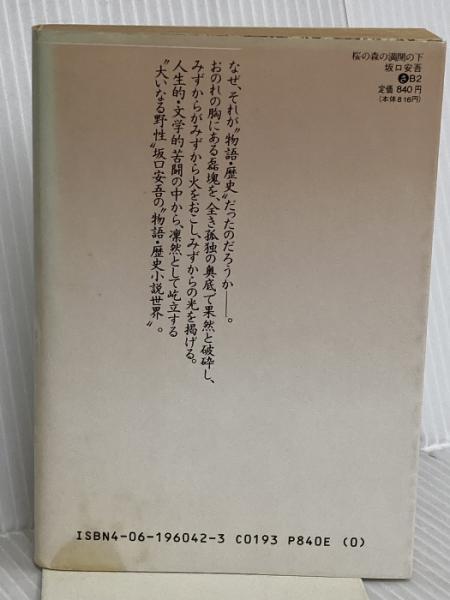 桜の森の満開の下
坂口安吾
さB2
定価840円
(本体816円)
なぜ、それが〝物語・歴史〟だったのだろうか――。
おのれの胸にある磊塊を、全き孤独の奥底で果然と破砕し、
みずからがみずから火をおこし、みずからの光を掲げる。
人生的・文学的苦闘の中から、凜然として屹立する
〝大いなる野性〟坂口安吾の〝物語・歴史小説世界〟。
ISBN4-06-196042-3 C0193 P840E (0)